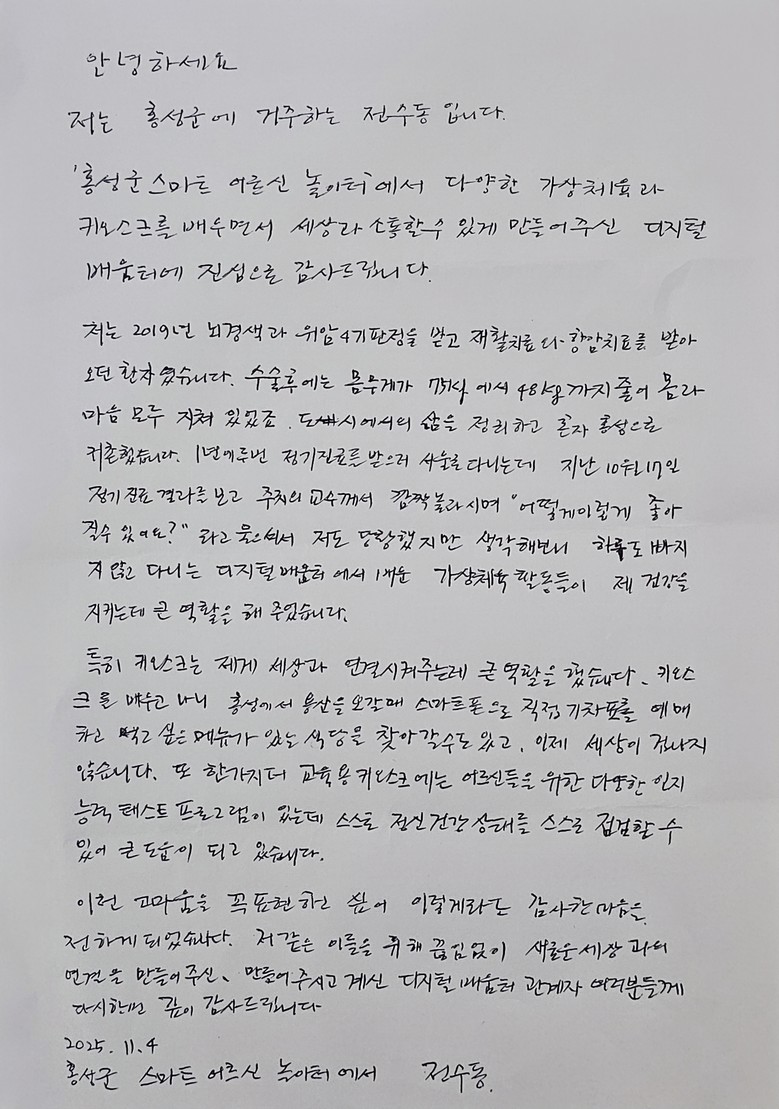 안녕하세요
저는 홍성군에 거주하는 전수동입니다.
'홍성군 스마트 어르신 놀이터'에서 다양한 가상체육과
키오스크를 배우면서 세상과 소통할수 있게 만들어주신 디지털
배움터에 진심으로 감사드립니다.
저는 2019년 뇌경색과 위암4기판정을 받고 재활치료와 항암치료를 받아
오던 환자였습니다. 수술후에는 몸무게가 75kg에서 48kg까지 줄어 몸과
마음 모두 지쳐 있었죠. 도시에서의 삶을 정리하고 혼자 홍성으로
귀촌했습니다. 1년에두번 정기진료를받으러 서울로다니는데 지난 10월17일
정기진료결과를보고 주치의교수께서 깜짝놀라시며 "어떻게이렇게 좋아
질수 있어요?" 라고 물으셔서 저도 당황했지만 생각해보니 하루도 빠지
지 않고 다니는 디지털배움터에서 배운 가상체육활동들이 제 건강을
지키는데 큰 역할을 해 주었습니다.
특히 키오스크는 제게 세상과 연결시켜주는데 큰역할을 했습니다. 키오스
크를 배우고 나니 홍성에서 용산을오갈때 스마트폰으로 직접기차표를 예매
하고 먹고싶은메뉴가 있는 식당을 찾아갈수도있고, 이제 세상이 겁나지
않습니다. 또 한가지더 교육용키오스크에는 어르신들을위한 다양한 인지
능력테스트프로그램이 있는데 스스로 정신건강상태를 스스로 점검할 수
있어 큰도움이 되고 있습니다.
이런 고마움을 꼭표현하고 싶어 이렇게라도 감사한마음을
전하게되었습니다. 저같은 이들을 위해 끊임없이 새로운세상과의
연결을 만들어주신, 만들어주시고계신 디지털배움터 관계자 여러분들께
다시한번 깊이 감사드립니다
2025. 11. 4
홍성군 스마트 어르신 놀이터에서 전수동.